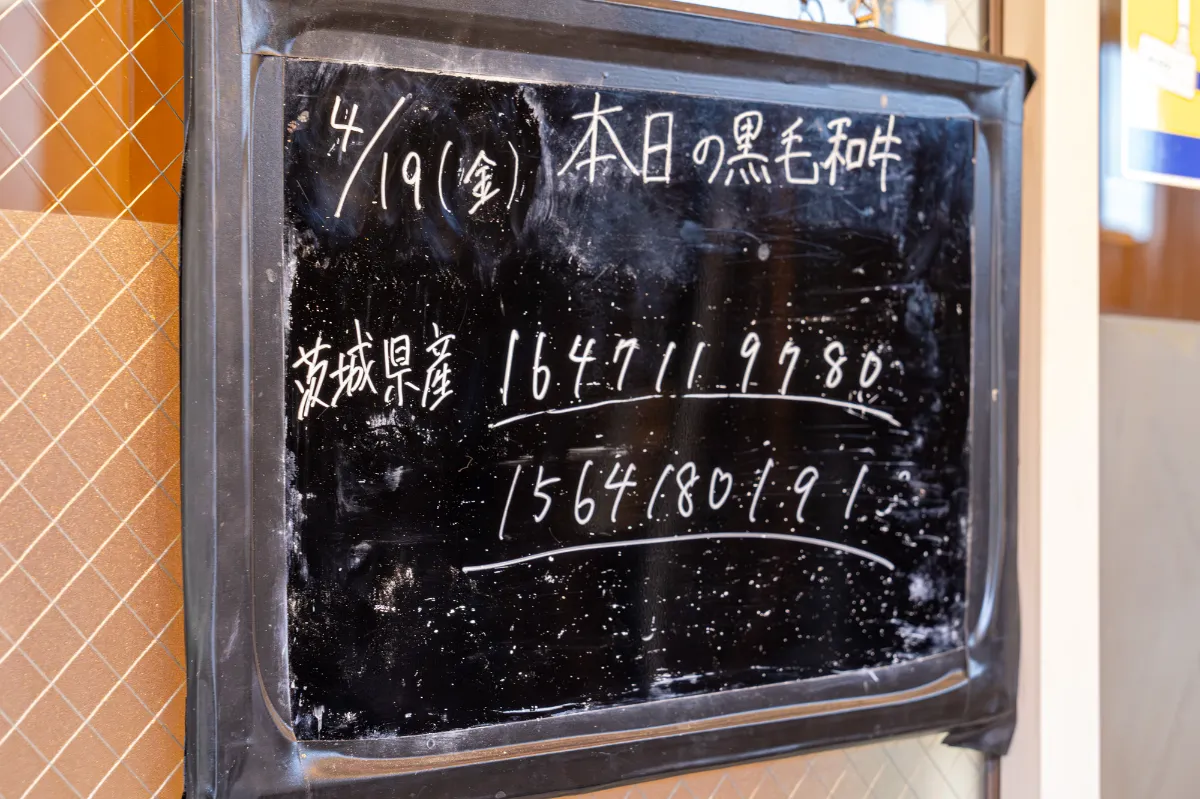 4/19(金) 本日の黒毛和牛
茨城県産 1647119780
1564180191